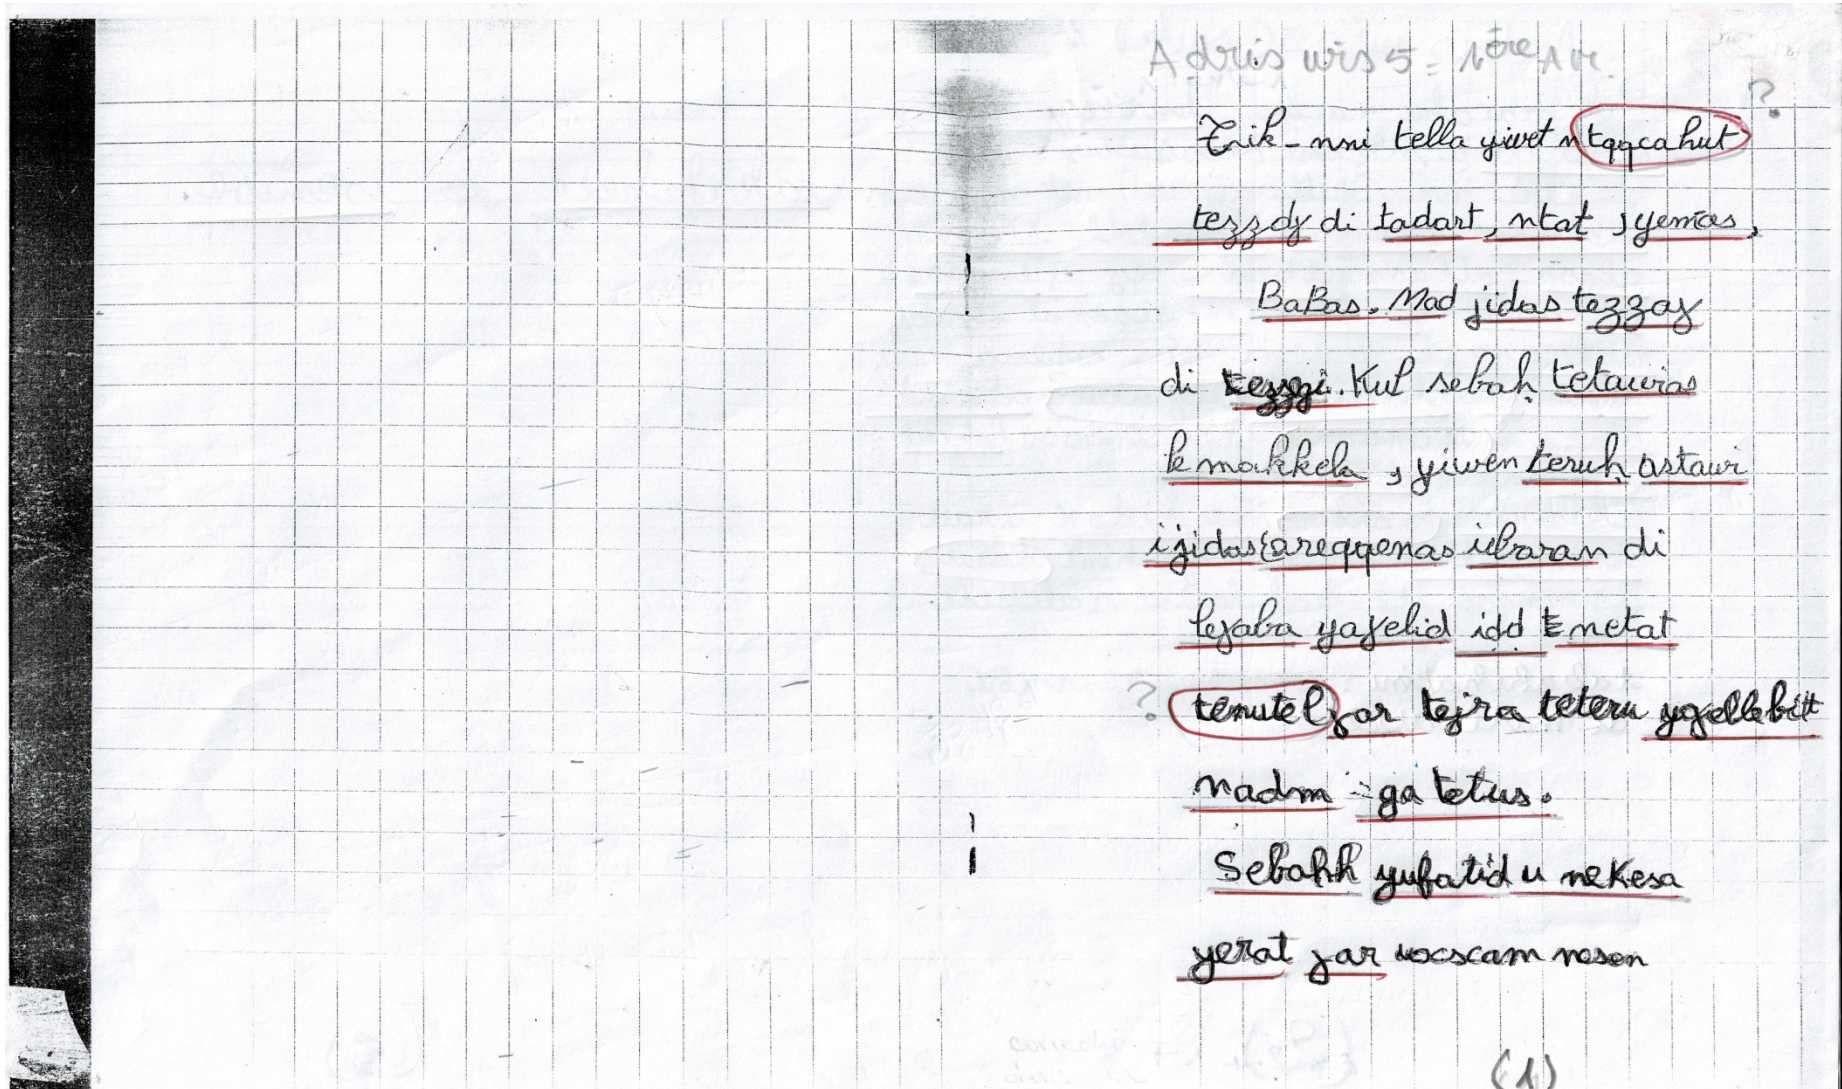 Adris wis 5 = 1ère AM.
?
Zik-nni tella yiwet n tqqcahut
tezzdɣ di tadart, ntat, yemas,
BaBas. Mad jidas tezzaɣ
di tezzgi. Kul sebaḥ tetawias
le makkela, yiwen teruḥ astawi
ijidas areqqenas iubaran di
leɣaba yaɣelid iḍḍ netat
? temutel ɣar tejra teteru yaɣellebitt
nadm ga tetus.
Sebahh yufatid u nekesa
yerat ɣar nsen
(1)